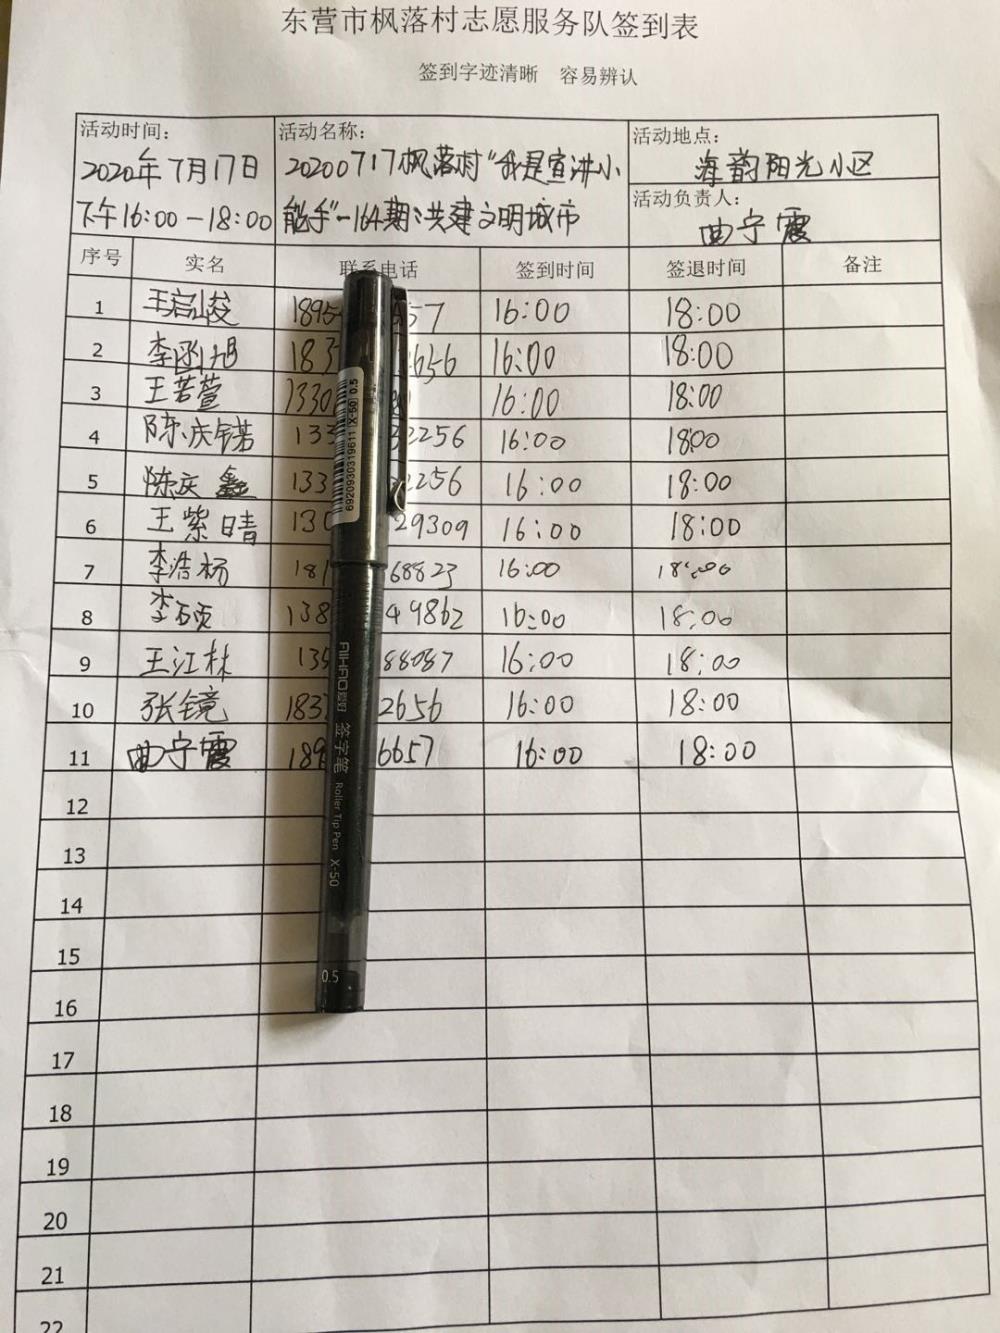 东营市枫落村志愿服务队签到表
签到字迹清晰 容易辨认
活动时间: 活动名称: 活动地点:
2020年7月17日 20200717枫落村"我是宣讲小 海韵阳光小区
下午16:00-18:00 能手"-164期:共建文明城市 活动负责人:
曲宁霞
序号 实名 联系电话 签到时间 签退时间 备注
1 王启峻 1895 57 16:00 18:00
2 李函旭 183 656 16:00 18:00
3 王若萱 1330 16:00 18:00
4 陈庆锘 133 32256 16:00 18:00
5 陈庆鑫 133 2256 16:00 18:00
6 王紫晴 130 29309 16:00 18:00
7 李浩杨 181 68823 16:00 18:00
8 李硕 138 49862 16:00 18:00
9 王江林 135 88087 16:00 18:00
10 张镜 183 2656 16:00 18:00
11 曲宁霞 189 6657 16:00 18:00
12
13
14
15
16
17
18
19
20
21
22
6920930319611 X-50 0.5
AIHAO 爱好 签字笔 Roller Tip Pen X-50
0.5